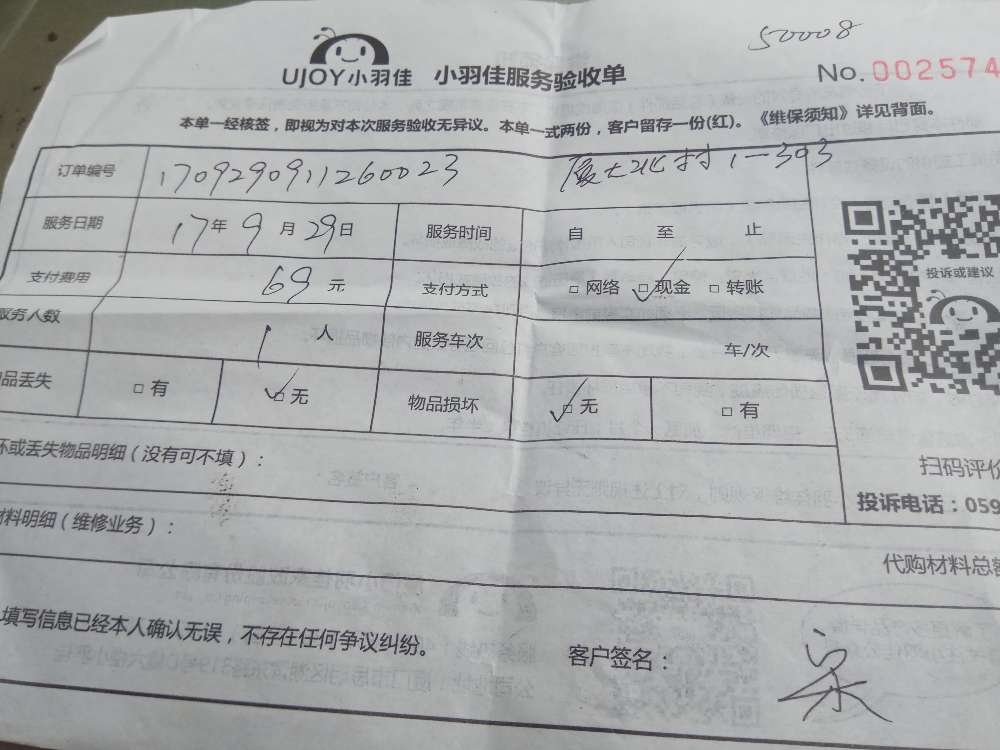 50008
UJOY小羽佳 小羽佳服务验收单 No.002574
本单一经核签，即视为对本次服务验收无异议。本单一式两份，客户留存一份(红)。《维保须知》详见背面。
订单编号 170929091260023 厦大北村1-303
服务日期 17年9月29日 服务时间 自 至 止
投诉或建议
支付费用 69元 支付方式 □网络 □现金 □转账
服务人数 1人 服务车次 车/次
品丢失 □有 □无 物品损坏 □无 □有
坏或丢失物品明细（没有可不填）： 扫码评价
投诉电话：059
材料明细（维修业务）： 代购材料总额
填写信息已经本人确认无误，不存在任何争议纠纷。 客户签名：